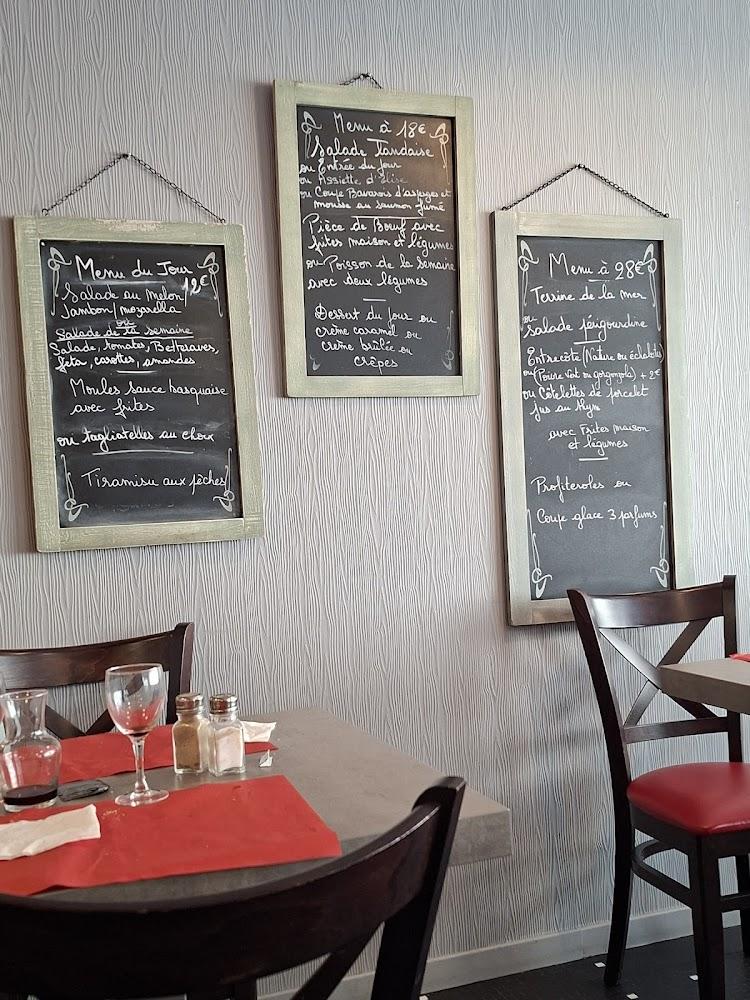 Menu du Jour
12€
Salade au Melon/
Jambon/mozarella
ou
Salade de la semaine
Salade, tomates, Betteraves,
feta, carottes, amandes
Moules sauce basquaise
avec frites
ou tagliatelles au choix
Tiramisu aux pêches
Menu à 18€
Salade Landaise
ou Entrée du jour
ou Assiette d'élise
ou Coupe Bavarois d'asperges et
mousse au saumon fumé
Pièce de Bœuf avec
frites maison et légumes
ou Poisson de la semaine
avec deux légumes
Dessert du jour ou
crème caramel ou
crème brûlée ou
crêpes
Menu à 28€
Terrine de la mer
ou
salade périgourdine
Entrecôte (Nature ou échalotes)
ou (Poivre Vert ou gorgonzola) + 2€
ou Côtelettes de porcelet
jus au thym
avec Frites maison
et légumes
Profiteroles ou
Coupe glace 3 parfums